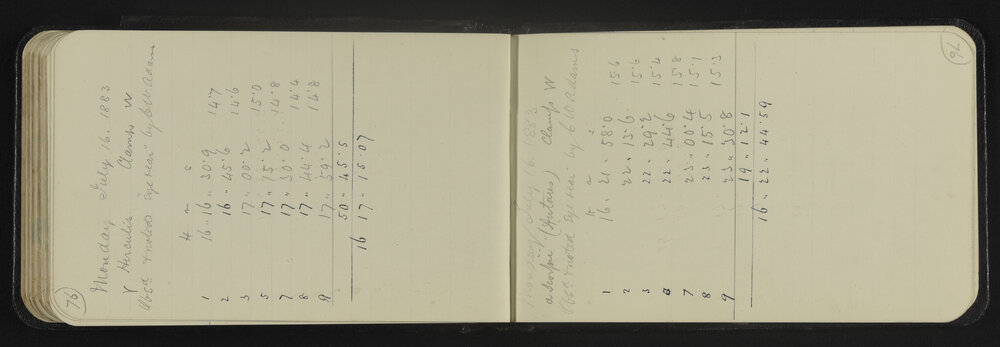 76
Monday July 16. 1883
γ Herculis Clamp W
Obsd & noted "Eye & ear" by C W Adams
H m s
1 16 " 16 " 30.9 14.7
2 16 " 45.6 14.6
3 17 " 00.2 15.0
5 17 " 15.2 14.8
7 17 " 30.0 14.4
8 17 " 44.4 14.8
9 17 " 59.2
50 " 45.5
16 17 " 15.07
76
Monday July 16. 1883
α Scorpii (Antares) Clamp W
Obsd & noted "Eye & ear" by C W Adams
H m s
1 16 " 21 " 58.0 15.6
2 22 " 13.6 15.6
3 22 " 29.2 15.4
22 " 44.6 15.8
7 23 " 00.4 15.1
8 23 " 15.5 15.3
9 23 " 30.8
19 " 12.1
16 " 22 " 44.59